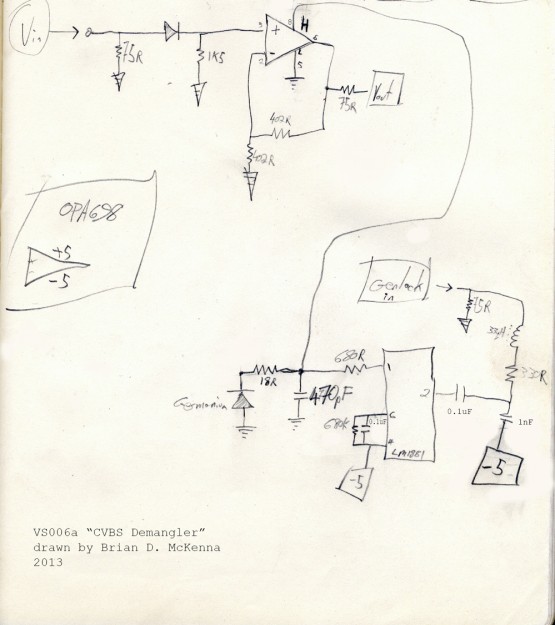 Vin
75R
1K5
3
+
8
H
6
2
-
4
5
75R
Vout
402R
402R
OPA698
+5
-5
Genlock
in
75R
33µH
330R
680R
18R
1
470pF
Germanium
2
0.1uF
1nF
680K
0.1uF
6
4
LM1881
-5
-5
VS006a “CVBS Demangler”
drawn by Brian D. McKenna
2013